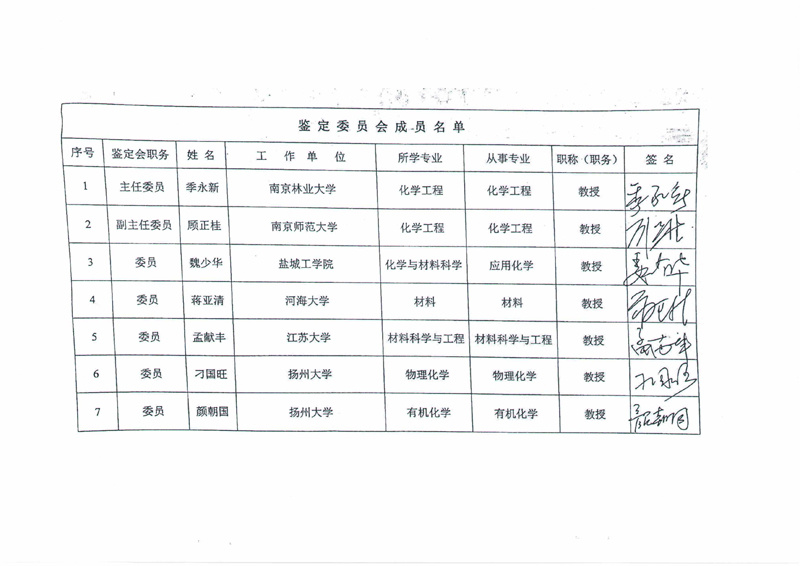 鉴定委员会成员名单
序号 鉴定会职务 姓名 工作单位 所学专业 从事专业 职称（职务） 签名
1 主任委员 季永新 南京林业大学 化学工程 化学工程 教授
2 副主任委员 顾正桂 南京师范大学 化学工程 化学工程 教授
3 委员 魏少华 盐城工学院 化学与材料科学 应用化学 教授
4 委员 蒋亚清 河海大学 材料 材料 教授
5 委员 孟献丰 江苏大学 材料科学与工程 材料科学与工程 教授
6 委员 刁国旺 扬州大学 物理化学 物理化学 教授
7 委员 颜朝国 扬州大学 有机化学 有机化学 教授 颜朝国